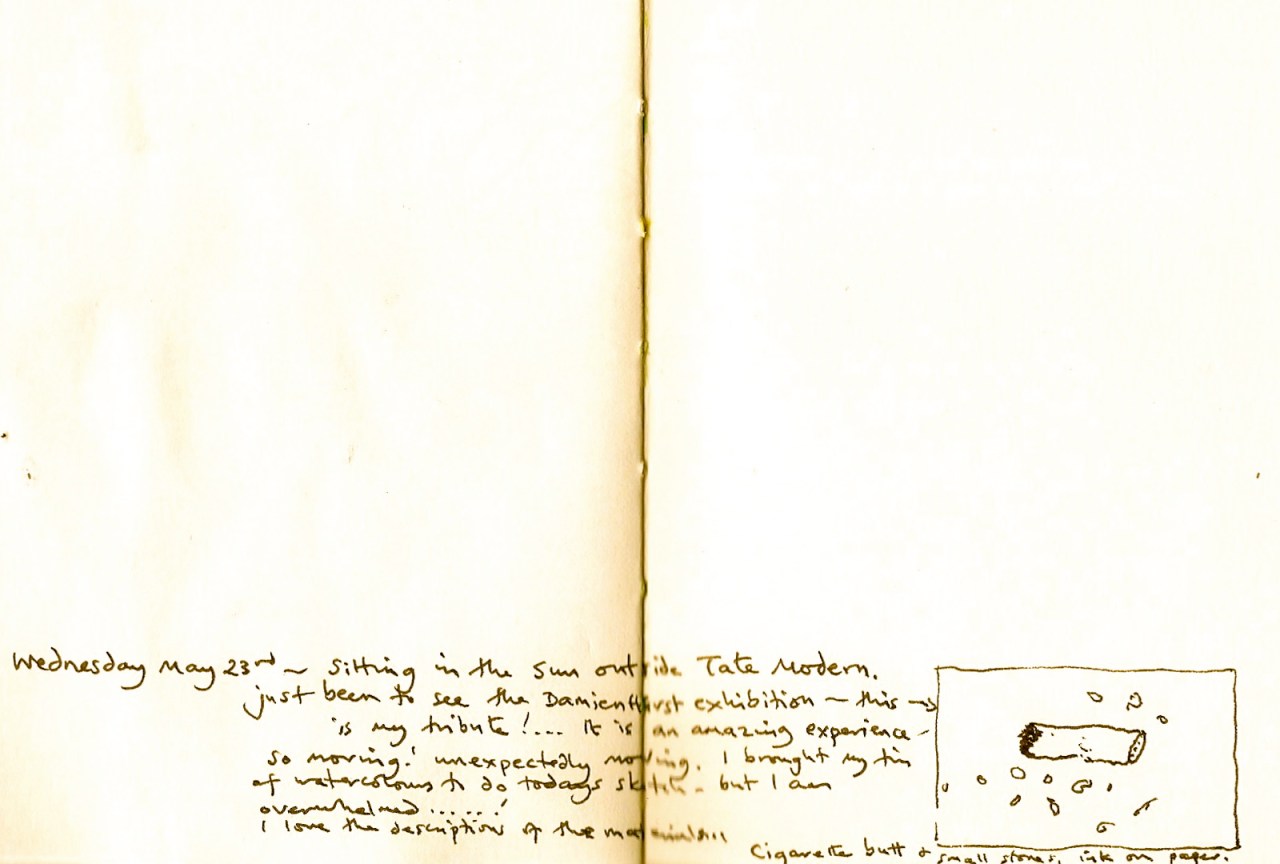 Wednesday May 23rd ~ Sitting in the Sun outside Tate Modern.
just been to see the Damien Hirst exhibition ~ this →
is my tribute!... It is an amazing experience -
So moving! unexpectedly moving. I brought my tin
of watercolours to do todays sketch - but I am
overwhelmed ......!
I love the descriptions of the materials!!!
Cigarette butt & small stones, ink on paper.